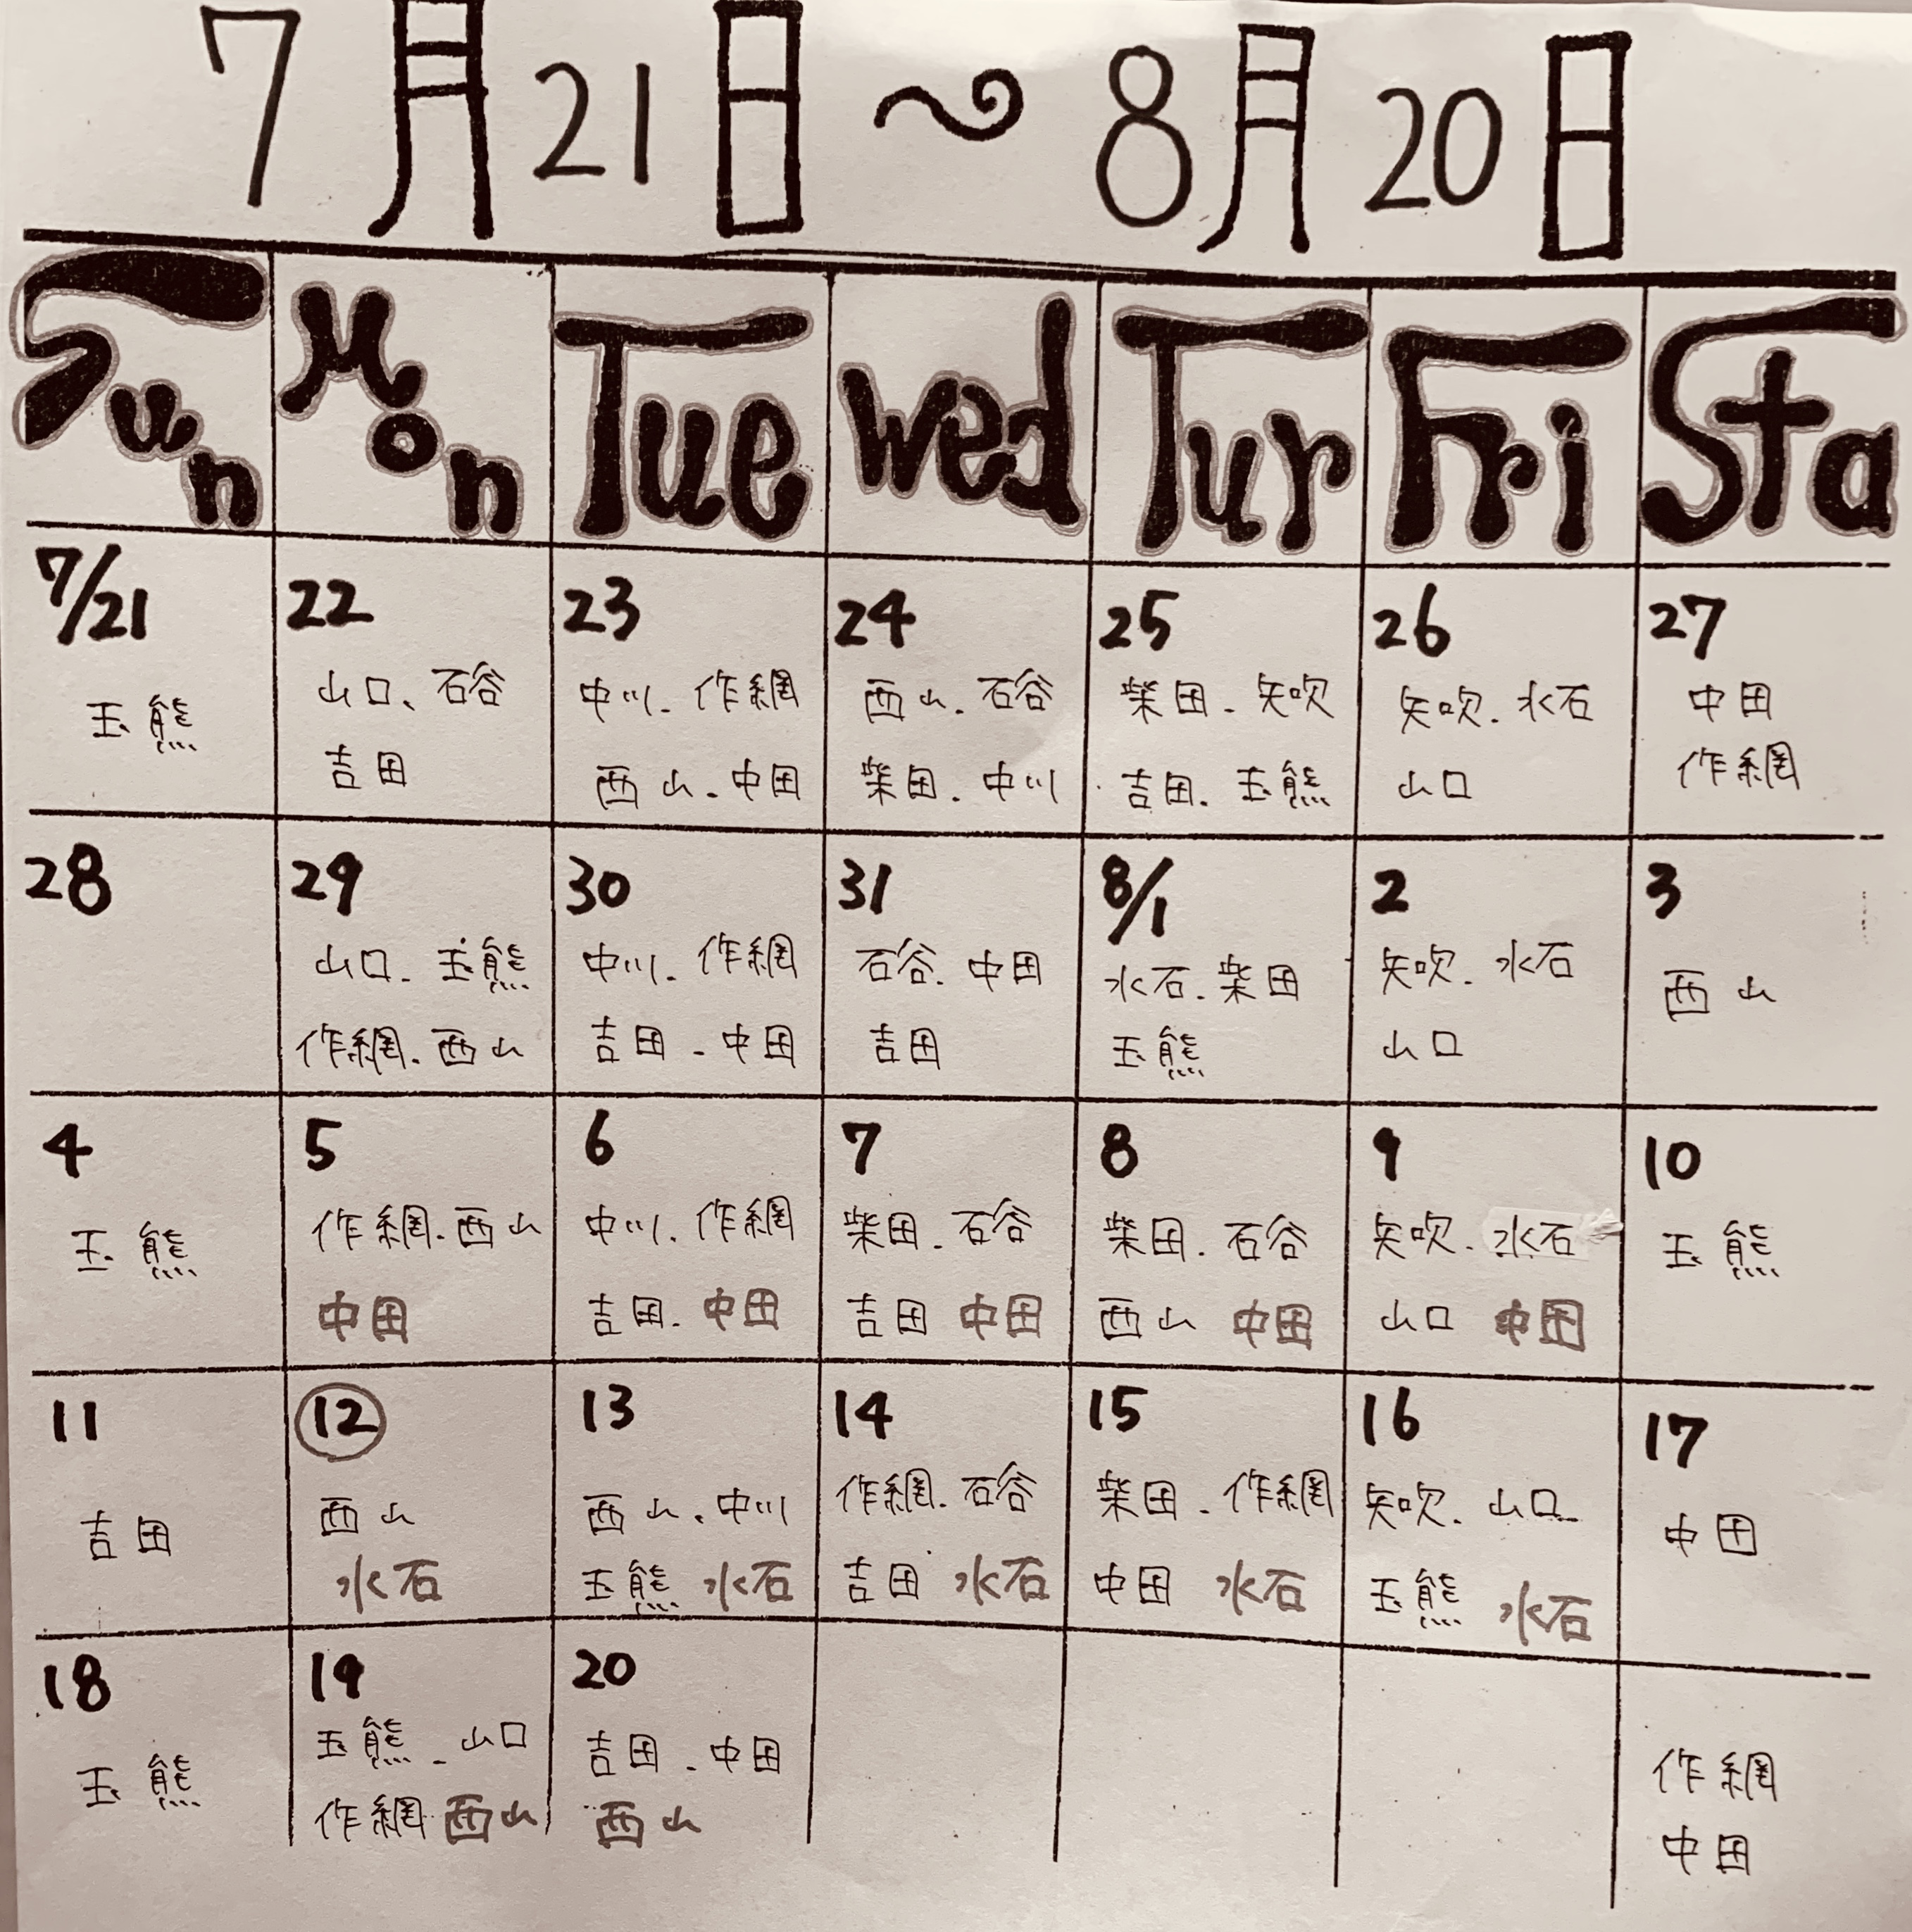 7月21日～8月20日
Sun Mon Tue Wed Tur Fri Sta
7/21
玉熊
22
山口、石谷
吉田
23
中川.作網
西山.中田
24
西山.石谷
柴田.中川
25
柴田.矢吹
吉田.玉熊
26
矢吹.水石
山口
27
中田
作網
28
29
山口.玉熊
作網.西山
30
中川.作網
吉田.中田
31
石谷.中田
吉田
8/1
水石.柴田
玉熊
2
矢吹.水石
山口
3
西山
4
玉熊
5
作網.西山
中田
6
中川.作網
吉田.中田
7
柴田.石谷
吉田 中田
8
柴田.石谷
西山 中田
9
矢吹.水石
山口 中田
10
玉熊
11
吉田
12
西山
水石
13
西山.中川
玉熊 水石
14
作網.石谷
吉田 水石
15
柴田.作網
中田 水石
16
矢吹.山口
玉熊 水石
17
中田
18
玉熊
19
玉熊.山口
作網 西山
20
吉田.中田
西山
作網
中田